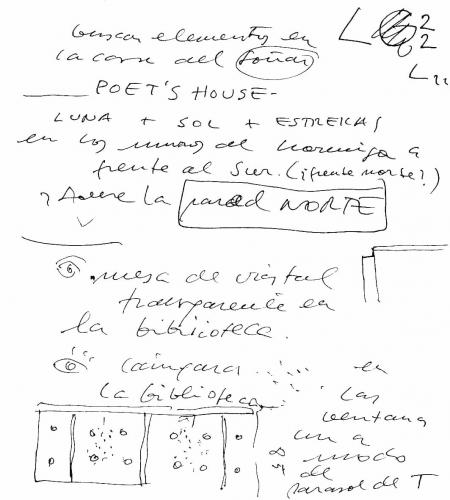 buscar elementos en
la casa del soñar
POET'S HOUSE-
LUNA + SOL + ESTRELLAS
en los muros de hormigon a
frente al Sur. (¿frente norte?)
la pared NORTE
mesa de cristal
transparente en
la biblioteca.
lampara
la biblioteca
en
las
ventana
un a
modo
de
parasol de T
L 22
L 22